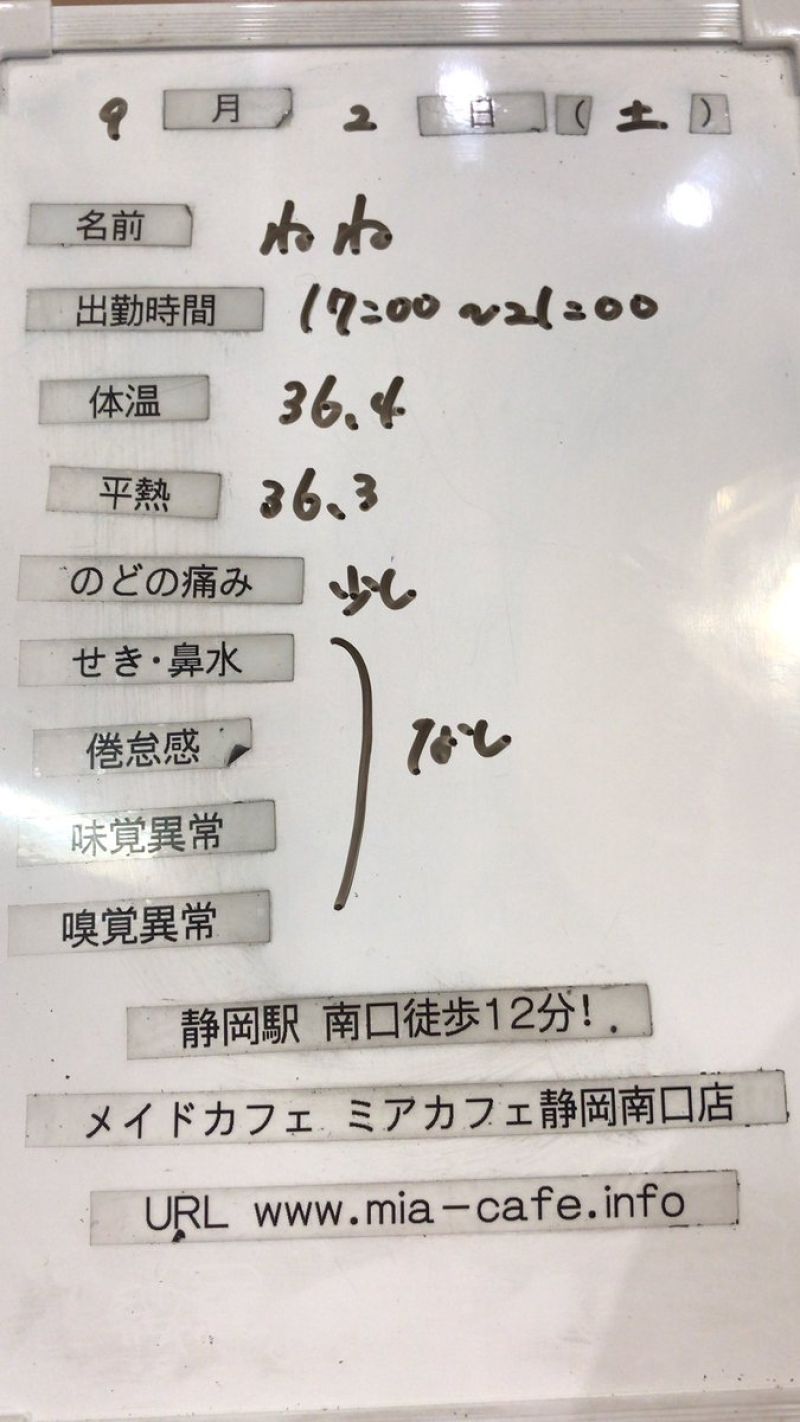 9月2日(土)
名前 ねね
出勤時間 17:00~21:00
体温 36.4
平熱 36.3
のどの痛み 少し
せき・鼻水
倦怠感 なし
味覚異常
嗅覚異常
静岡駅 南口徒歩12分!
メイドカフェ ミアカフェ静岡南口店
URL www.mia-cafe.info